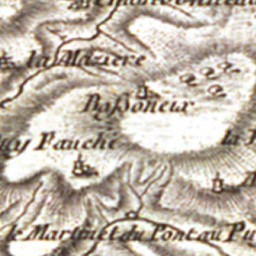 la Maziere
Bassoneix
uy Fauché
la
le Martinet du Pont au Pu